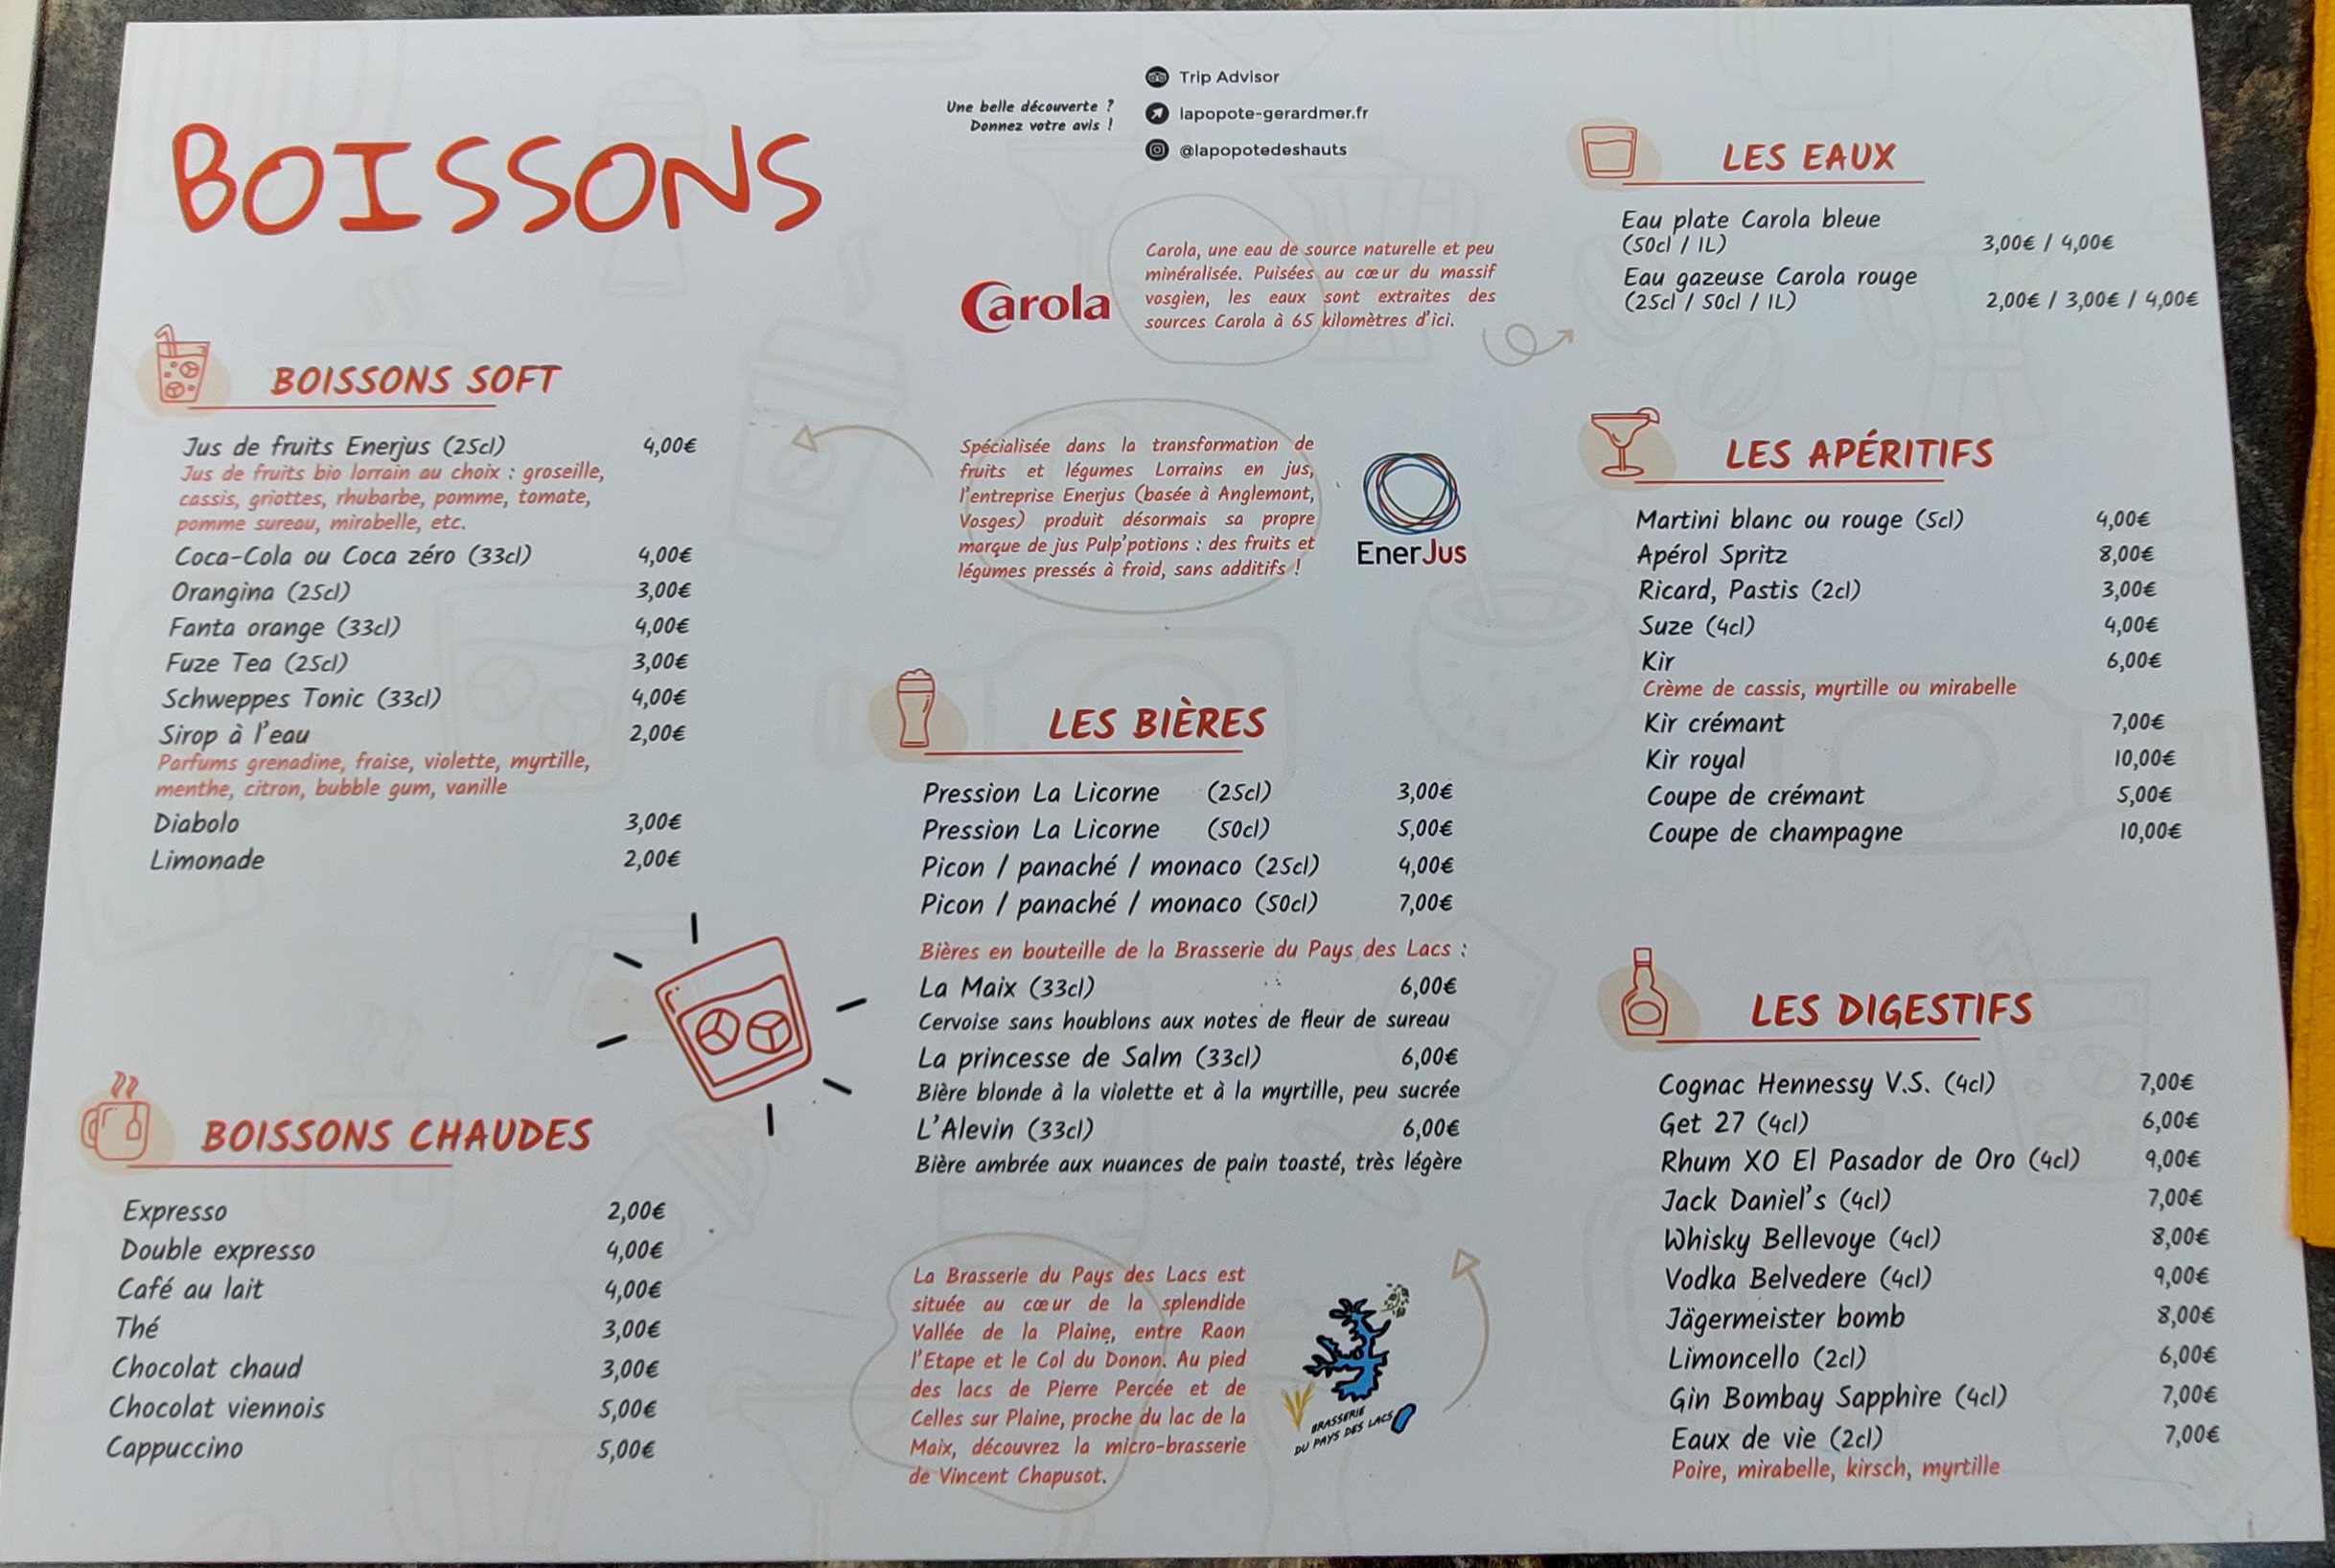 BOISSONS
Une belle découverte ?
Donnez votre avis !
Trip Advisor
lapopote-gerardmer.fr
@lapopotedeshauts
Carola
Carola, une eau de source naturelle et peu
minéralisée. Puisées au cœur du massif
vosgien, les eaux sont extraites des
sources Carola à 65 kilomètres d'ici.
BOISSONS SOFT
Jus de fruits Enerjus (25cl) 4,00€
Jus de fruits bio lorrain au choix : groseille,
cassis, griottes, rhubarbe, pomme, tomate,
pomme sureau, mirabelle, etc.
Coca-Cola ou Coca zéro (33cl) 4,00€
Orangina (25cl) 3,00€
Fanta orange (33cl) 4,00€
Fuze Tea (25cl) 3,00€
Schweppes Tonic (33cl) 4,00€
Sirop à l'eau 2,00€
Parfums grenadine, fraise, violette, myrtille,
menthe, citron, bubble gum, vanille
Diabolo 3,00€
Limonade 2,00€
BOISSONS CHAUDES
Expresso 2,00€
Double expresso 4,00€
Café au lait 4,00€
Thé 3,00€
Chocolat chaud 3,00€
Chocolat viennois 5,00€
Cappuccino 5,00€
Spécialisée dans la transformation de
fruits et légumes Lorrains en jus,
l'entreprise Enerjus (basée à Anglemont,
Vosges) produit désormais sa propre
marque de jus Pulp'potions : des fruits et
légumes pressés à froid, sans additifs !
EnerJus
LES BIÈRES
Pression La Licorne (25cl) 3,00€
Pression La Licorne (50cl) 5,00€
Picon / panaché / monaco (25cl) 4,00€
Picon / panaché / monaco (50cl) 7,00€
Bières en bouteille de la Brasserie du Pays des Lacs :
La Maix (33cl) 6,00€
Cervoise sans houblons aux notes de fleur de sureau
La princesse de Salm (33cl) 6,00€
Bière blonde à la violette et à la myrtille, peu sucrée
L'Alevin (33cl) 6,00€
Bière ambrée aux nuances de pain toasté, très légère
La Brasserie du Pays des Lacs est
située au cœur de la splendide
Vallée de la Plaine, entre Raon
l'Etape et le Col du Donon. Au pied
des lacs de Pierre Percée et de
Celles sur Plaine, proche du lac de la
Maix, découvrez la micro-brasserie
de Vincent Chapusot.
BRASSERIE
DU PAYS DES LACS
LES EAUX
Eau plate Carola bleue
(50cl / 1L) 3,00€ / 4,00€
Eau gazeuse Carola rouge
(25cl / 50cl / 1L) 2,00€ / 3,00€ / 4,00€
LES APÉRITIFS
Martini blanc ou rouge (5cl) 4,00€
Apérol Spritz 8,00€
Ricard, Pastis (2cl) 3,00€
Suze (4cl) 4,00€
Kir 6,00€
Crème de cassis, myrtille ou mirabelle
Kir crémant 7,00€
Kir royal 10,00€
Coupe de crémant 5,00€
Coupe de champagne 10,00€
LES DIGESTIFS
Cognac Hennessy V.S. (4cl) 7,00€
Get 27 (4cl) 6,00€
Rhum XO El Pasador de Oro (4cl) 9,00€
Jack Daniel's (4cl) 7,00€
Whisky Bellevoye (4cl) 8,00€
Vodka Belvedere (4cl) 9,00€
Jägermeister bomb 8,00€
Limoncello (2cl) 6,00€
Gin Bombay Sapphire (4cl) 7,00€
Eaux de vie (2cl) 7,00€
Poire, mirabelle, kirsch, myrtille